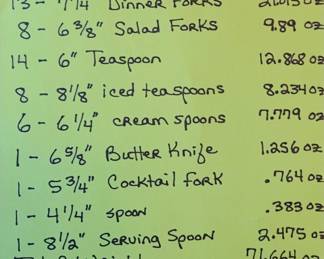 13 - 7 1/4" Dinner Forks
8 - 6 3/8" Salad Forks 9.89 oz
14 - 6" Teaspoon 12.868 oz
8 - 8 1/8" iced teaspoons 8.234 oz
6 - 6 1/4" cream spoons 7.779 oz
1 - 6 5/8" Butter Knife 1.256 oz
1 - 5 3/4" Cocktail Fork .764 oz
1 - 4 1/4" spoon .383 oz
1 - 8 1/2" Serving Spoon 2.475 oz
71.664 oz